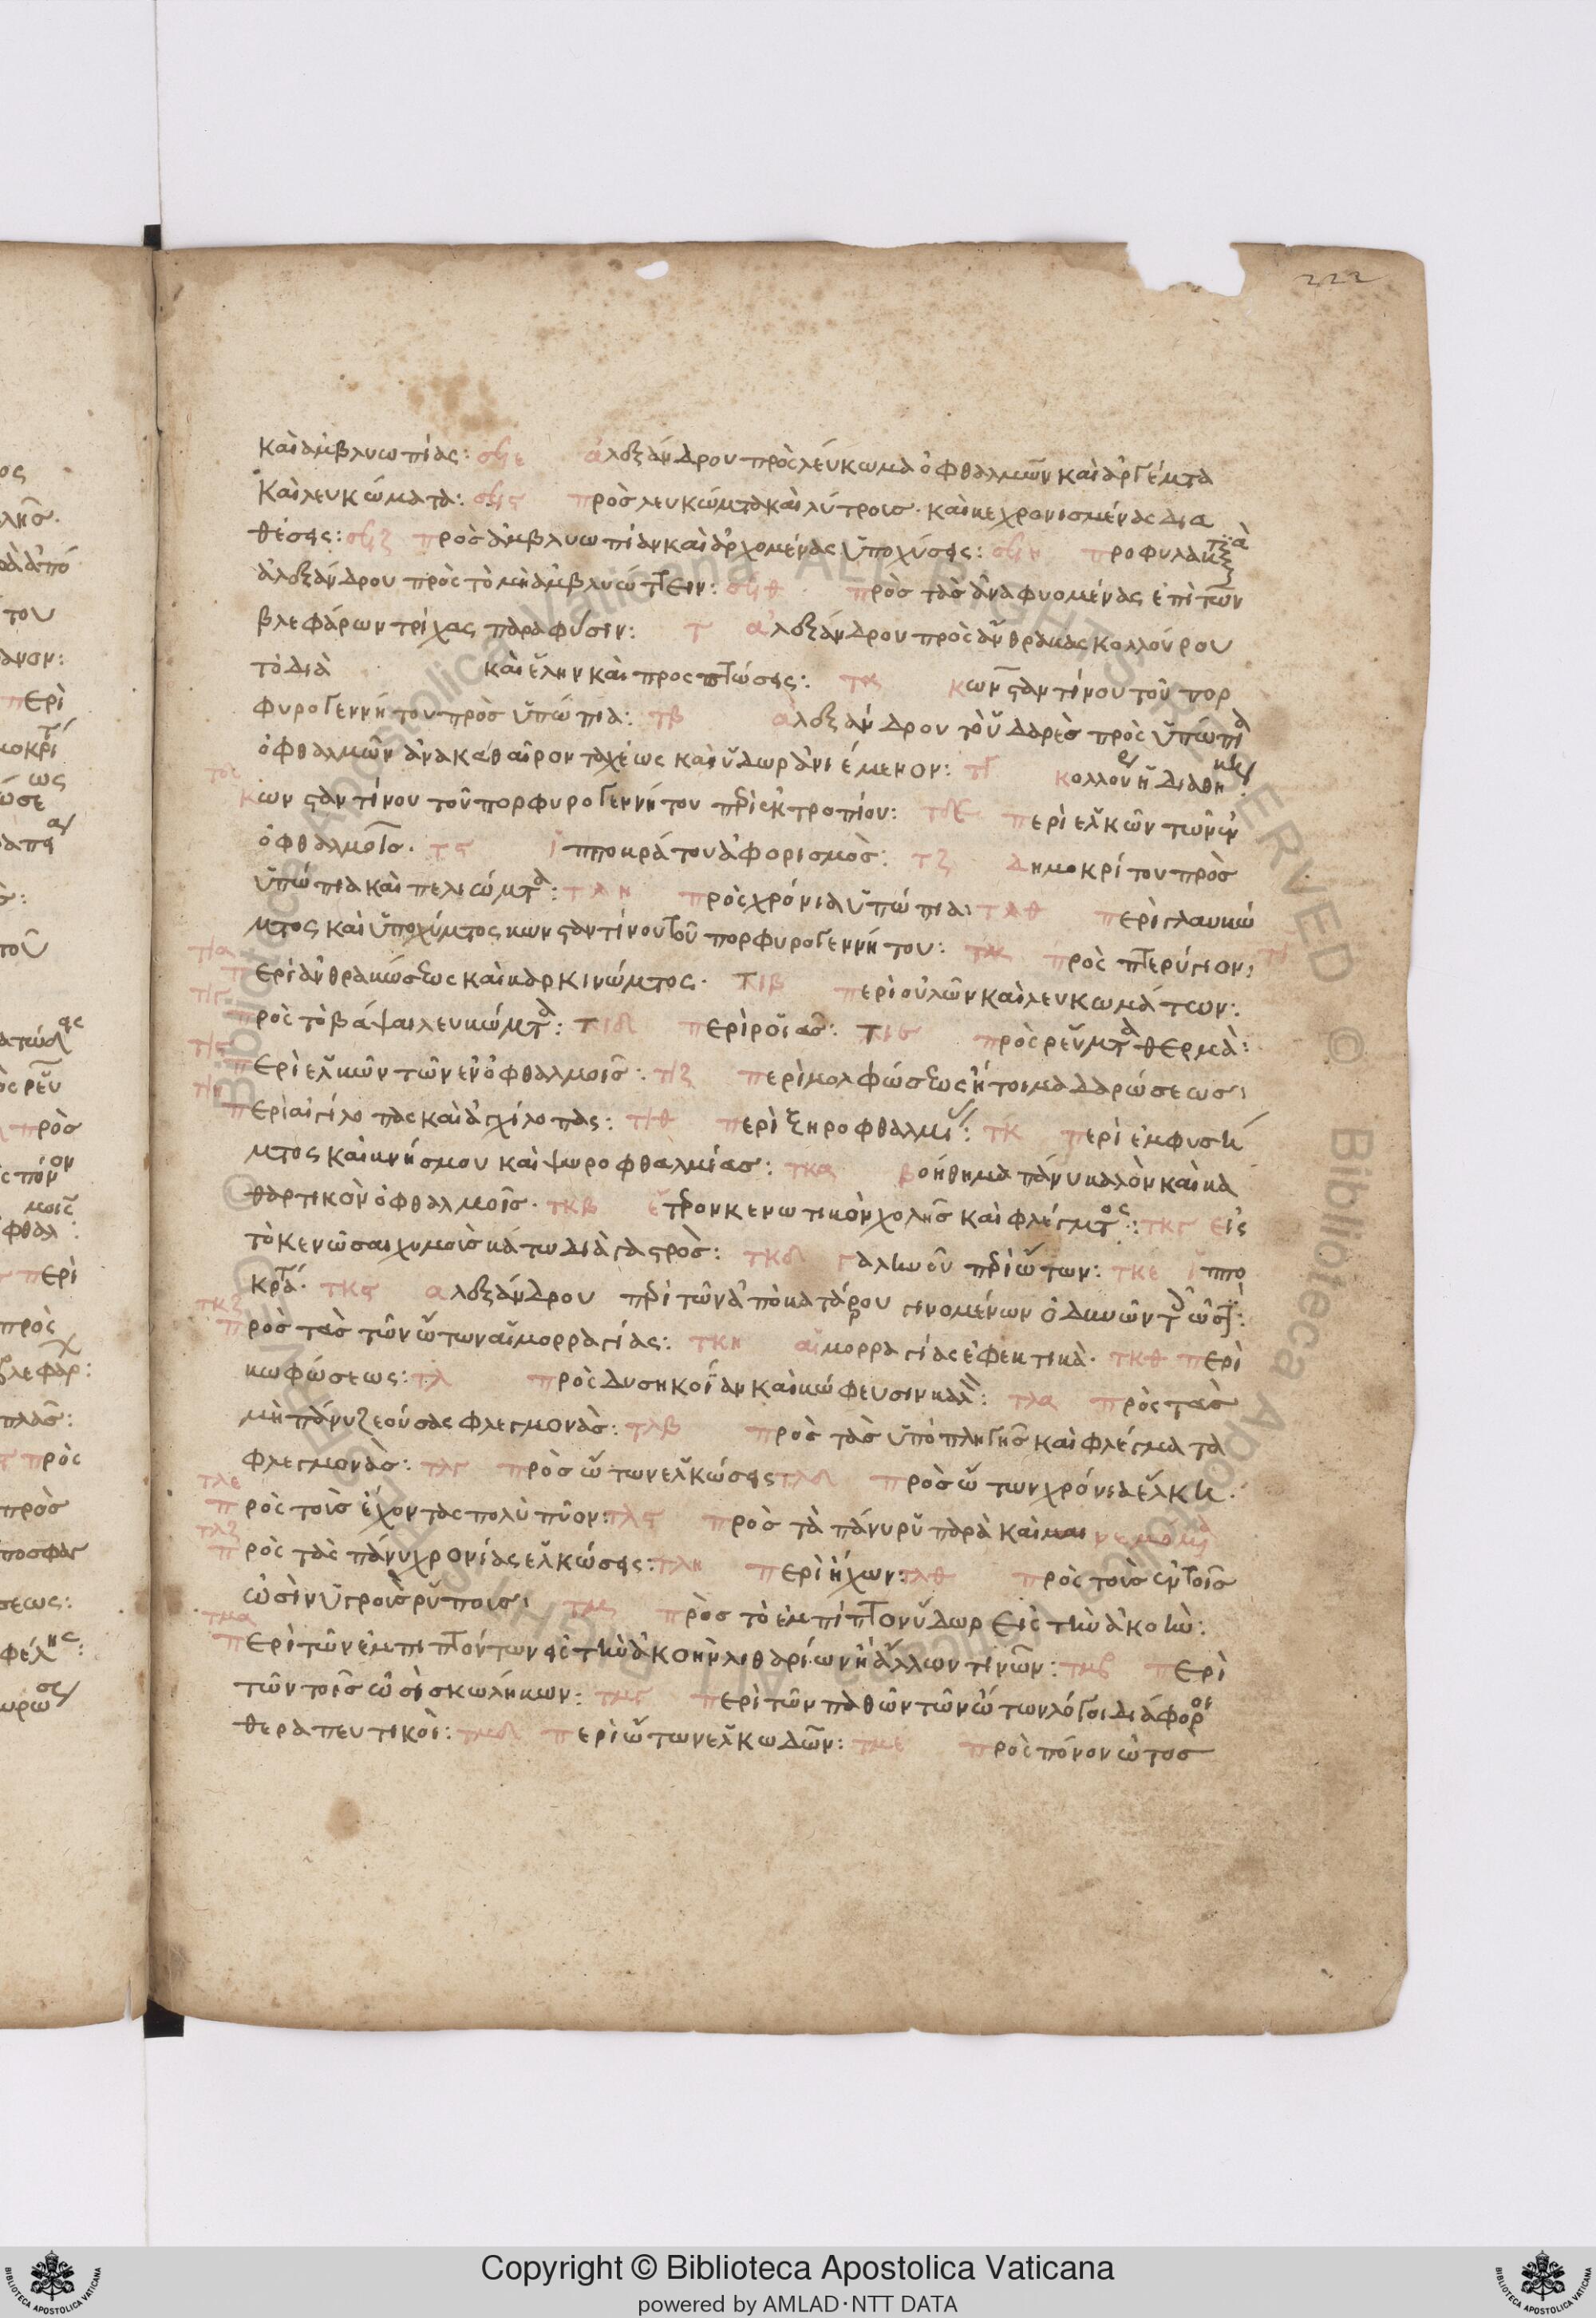 222
καὶ ἀμβλυωπίας: σϟε ἀλεξάνδρου πρὸς λεύκωμα ὀφθαλμῶν καὶ ἀργέμτα
καὶ λευκώματα: σϟς πρὸς λευκώμτα καὶ λύτροις. καὶ κεχρονισμένας δια
θέσεις: σϟζ πρὸς ἀμβλυωπίαν καὶ ἀρχομένας ὑποχύσεις: σϟη προφυλακ
ἀλεξάνδρου πρὸς τὸ μὴ ἀμβλυώττειν: σϟθ πρὸς τὰς ἀναφυομένας ἐπὶ τῶν
βλεφάρων τρίχας παραφύσιν: τ ἀλεξάνδρου πρὸς ἄνθρακας κολλούρου
τὸ διὰ καὶ ἕλκη καὶ προςπτώσεις: τα κωνσταντίνου τοῦ πορ
φυρογεννήτου πρὸς ὑπώπια: τβ ἀλεξάνδρου τὸ ὑδαρὲς πρὸς ὑπώπια
ὀφθαλμῶν ἀνακαθαῖρον ταχέως καὶ ὕδωρ ἀνιέμενον: τγ
κωνσταντίνου τοῦ πορφυρογεννήτου περὶ ἐκτροπίου: τε περὶ ἑλκῶν τῶν ἐν
ὀφθαλμοῖς. τς ἱπποκράτου ἀφορισμὸς: τζ δημοκρίτου πρὸς
ὑπώπια καὶ πελιώμτα: πρὸς χρόνια ὑπώπια: περὶ γλαυκώ
μτος καὶ ὑποχύμτος κωνσταντίνου τοῦ πορφυρογεννήτου: πρὸς πτερύγιον:
τια περὶ ἀνθρακώσεως καὶ καρκινώμτος. τιβ περὶ οὐλῶν καὶ λευκωμάτων:
τιγ πρὸς τὸ βάψαι λευκώμτα: τιδ περὶ ῥοίας: τιε πρὸς ῥεύμτα θερμὰ:
τις περὶ ἑλκῶν τῶν ἐν ὀφθαλμοῖς: τιζ περὶ μολφώσεως ἤτοι μαδαρώσεως:
τιη περὶ αἰγίλοπας καὶ ἀγχίλοπας: τιθ περὶ ξηροφθαλμί: τκ περὶ ἐμφυσή
μτος καὶ κνήσμου καὶ ψωροφθαλμίας: τκα βοήθημα πάνυ καλὸν καὶ κα
θαρτικὸν ὀφθαλμοῖς. τκβ ἕτερον κενωτικὸν χολῆς καὶ φλέγμτος: τκγ εἰς
τὸ κενῶσαι χυμοὺς κάτω διὰ γαστρὸς: τκδ γαληνοῦ περὶ ὤτων: τκε ἱππο
κρά. τκς ἀλεξάνδρου περὶ τῶν ἀπὸ κατάρρου γινομένων ὀδυνῶν
τκζ πρὸς τὰς τῶν ὤτων αἱμορραγίας: τκη αἱμορραγίας ἐφεκτικὰ. τκθ περὶ
κωφώσεως: τλ πρὸς δυσηκοΐαν καὶ κώφευσιν καλ: τλα πρὸς τὰς
μὴ πάνυ ζεούσας φλεγμονὰς: τλβ πρὸς τὰς ὑπὸ πληγῆς καὶ φλέγματα
φλεγμονὰς: τλγ πρὸς ὤτων ἑλκώσεις τλδ πρὸς ὤτων χρόνια ἕλκη.
τλε πρὸς τοὺς ἔχοντας πολὺ πῦον: τλς πρὸς τὰ πάνυ ῥυπαρὰ καὶ
τλζ πρὸς τὰς πάνυ χρονίας ἑλκώσεις: τλη περὶ ἤχων: τλθ πρὸς τοὺς ἐν τοῖς
ὠσὶν ὑγροὺς ῥύπους: τμ πρὸς τὸ ἐμπίπτον ὕδωρ εἰς τὴν ἀκοὴν:
τμα περὶ τῶν ἐμπιπτόντων εἰς τὴν ἀκοὴν λιθαρίων ἢ ἄλλων τινῶν: τμβ περὶ
τῶν τοῖς ὠσὶ σκωλήκων: τμγ περὶ τῶν παθῶν τῶν ὤτων λόγοι διάφοροι
θεραπευτικοὶ: τμδ περὶ ὤτων ἑλκωδῶν: τμε πρὸς πόνον ὠτὸς
Copyright © Biblioteca Apostolica Vaticana
powered by AMLAD·NTT DATA